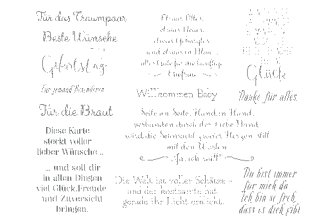 Für das Traumpaar
Beste Wünsche
Geburtstag
Für die Braut
Diese Karte
steckt voller
lieber Wünsche ...
... und soll dir
in allen Dingen
viel Glück, Freude
und Zuversicht
bringen.
Etwas Altes,
etwas Neues,
etwas Geborgtes
und etwas in Blau ...
Willkommen Baby
Seite an Seite, Hand in Hand,
verbunden durch der Liebe Band,
wird die Sehnsucht zweier Herzen still
mit den Worten
„Ja, ich will!“
Die Welt ist voller Schätze -
und das kostbarste hat
gerade ihr Licht erblickt.
Glück
Danke für alles.
Du bist immer
für mich da
ich bin so froh,
dass es dich gibt